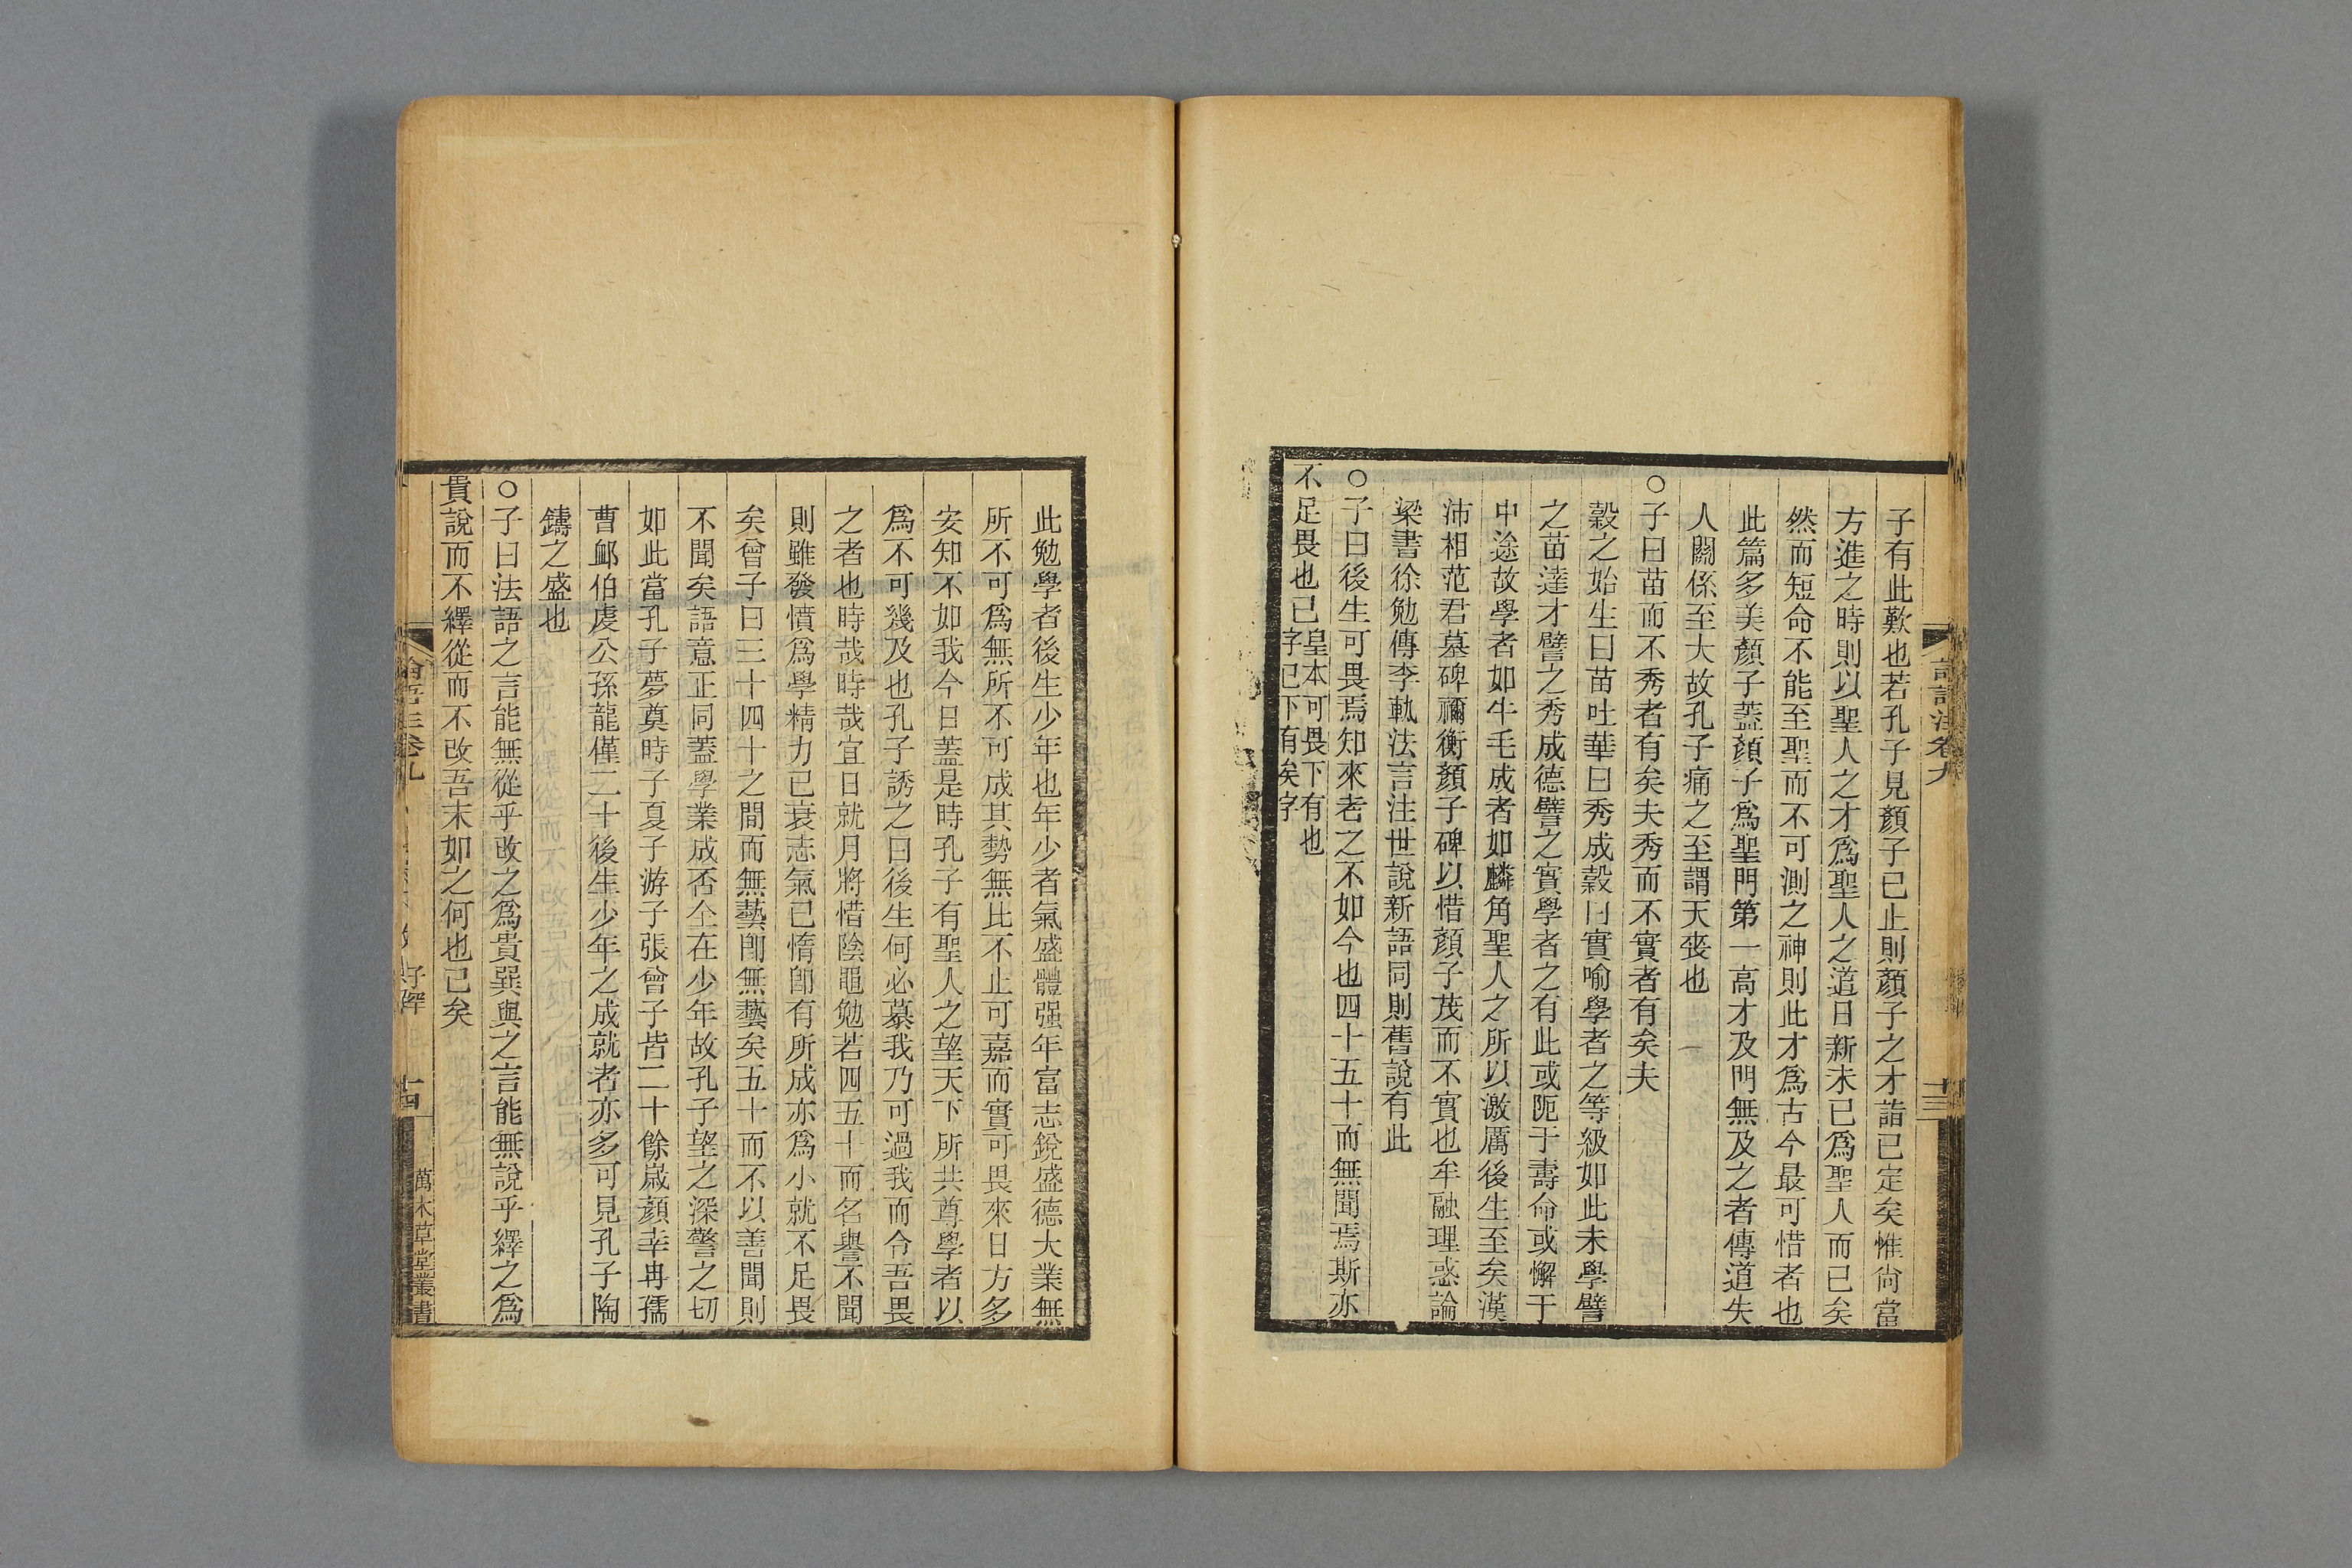 子有此歎也若孔子見顏子已止則顏子之才詣已定矣惟尙當
方進之時則以聖人之才爲聖人之道日新未已爲聖人而已矣
然而短命不能至聖而不可測之神則此才爲古今最可惜者也
此篇多美顏子蓋顏子爲聖門第一高才及門無及之者傳道失
人關係至大故孔子痛之至謂天喪也
○子曰苗而不秀者有矣夫秀而不實者有矣夫
穀之始生曰苗吐華曰秀成穀曰實喻學者之等級如此未學譬
之苗達才譬之秀成德譬之實學者之有此或阨于壽命或懈于
中途故學者如牛毛成者如麟角聖人之所以激厲後生至矣漢
沛相范君墓碑禰衡顏子碑以惜顏子茂而不實也牟融理惑論
梁書徐勉傳李軌法言注世說新語同則舊說有此
○子曰後生可畏焉知來者之不如今也四十五十而無聞焉斯亦
不足畏也已
皇本可畏下有也
字已下有矣字
十三
此勉學者後生少年也年少者氣盛體强年富志銳盛德大業無
所不可爲無所不可成其勢無比不止可嘉而實可畏來日方多
安知不如我今日蓋是時孔子有聖人之望天下所共尊學者以
爲不可幾及也孔子誘之曰後生何必慕我乃可過我而令吾畏
之者也時哉時哉宜日就月將惜陰黽勉若四五十而名譽不聞
則雖發憤爲學精力已衰志氣已惰卽有所成亦爲小就不足畏
矣曾子曰三十四十之間而無藝卽無藝矣五十而不以善聞則
不聞矣語意正同蓋學業成否全在少年故孔子望之深警之切
如此當孔子夢奠時子夏子游子張曾子皆二十餘歲顏幸冉孺
曹卹伯虔公孫龍僅二十後生少年之成就者亦多可見孔子陶
鑄之盛也
○子曰法語之言能無從乎改之爲貴巽與之言能無說乎繹之爲
貴說而不繹從而不改吾末如之何也已矣
十四
萬木草堂叢書